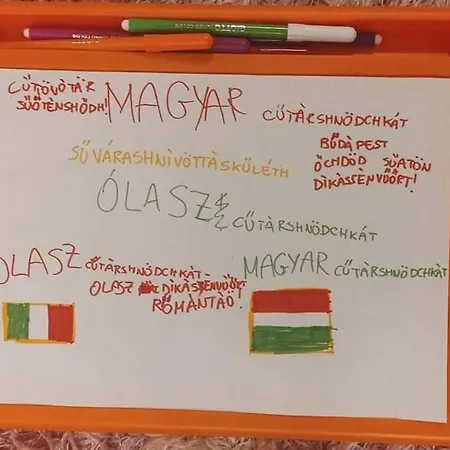 GIOTTO
CŰTÖVÒTÁR
SŰÖTÈNSHÖDH!
MAGYAR
CŰTÀRSHNÖDCHKÁT
BŰDÀ PEST
ÖCHDÖD SŰÀTÖN
DÌKÀSSÈNVŐŐRT!
SŰ VÁRASHNÌVÖTTÀSKŰLÉTH
ÓLASZ
CŰTÀRSHNÖDCHKÁT
OLASZ CŰTÀRSHNÖDCHKÀT-
OLASZ DÌKÀSSÈNVŐŐRT
RŐMÀNTÀÖ!
MAGYAR CŰTÀRSHNÖDCHKÀT